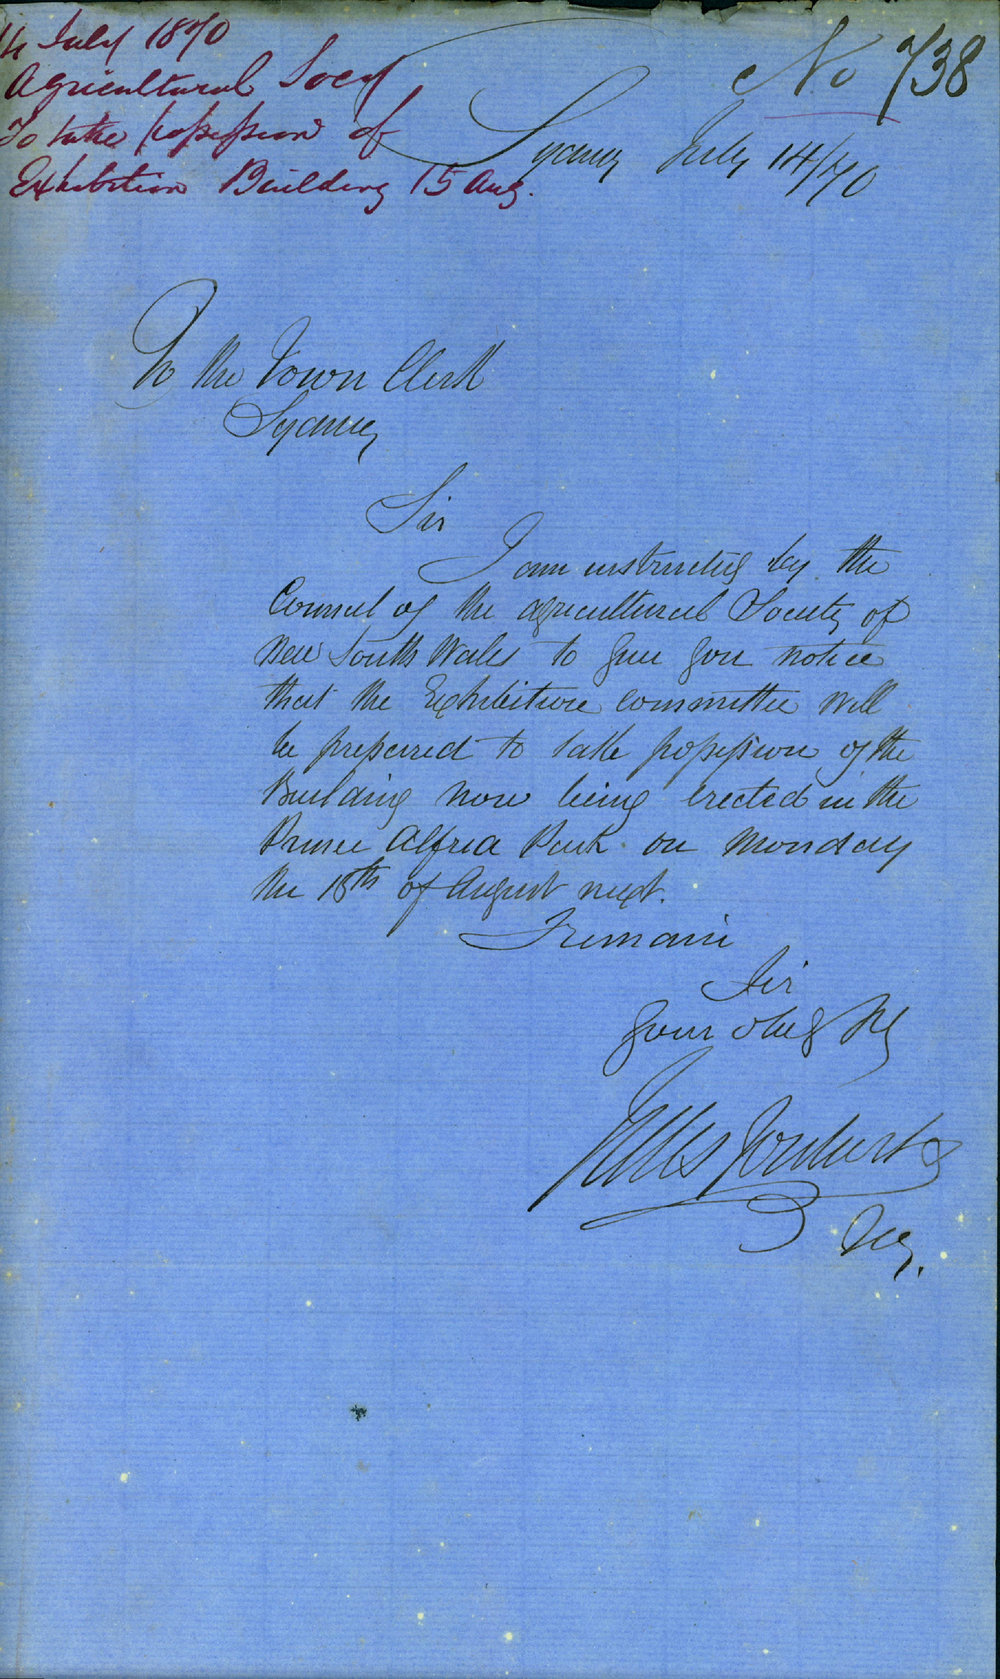 14 July 1870
Agricultural Socy
To take possession of
Exhibition Building 15 Aug.
No 738
Sydney July 14/70
To the Town Clerk
Sydney
Sir
I am instructed by the
Council of the Agricultural Society of
New South Wales to give you notice
that the Exhibition Committee will
be prepared to take possession of the
Building now being erected in the
Prince Alfred Park on Monday
the 15th of August next.
I remain
Sir
Your Obeg
Jules Joubert
Secy.